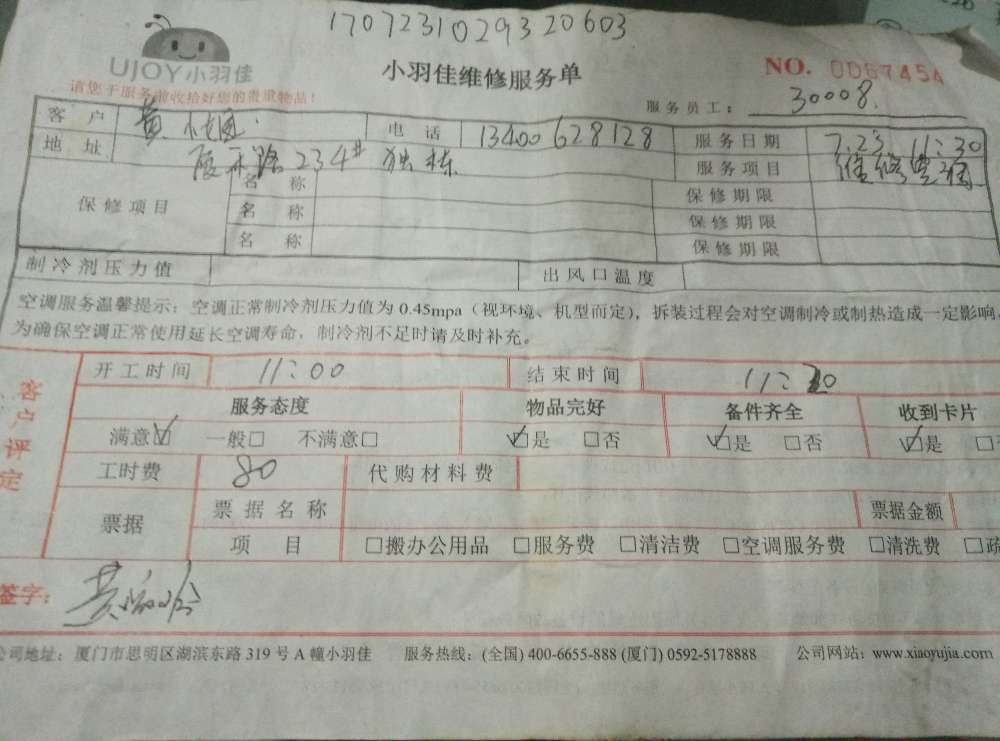 17072310293320603
UJOY小羽佳
小羽佳维修服务单
NO. 0067454
请您于服务前收拾好您的贵重物品！
服务员工： 30008
客户 黄 电话 13400628128 服务日期 7.23. 11:30
地址 展示路 234# 独栋 服务项目 维修空调
保修项目 名称 保修期限
名称 保修期限
名称 保修期限
制冷剂压力值 出风口温度
空调服务温馨提示：空调正常制冷剂压力值为 0.45mpa（视环境、机型而定），拆装过程会对空调制冷或制热造成一定影响，
为确保空调正常使用延长空调寿命，制冷剂不足时请及时补充。
客户评定
开工时间 11:00 结束时间 11:20
服务态度 物品完好 备件齐全 收到卡片
满意☑ 一般□ 不满意□ ☑是 □否 ☑是 □否 ☑是 □
工时费 80 代购材料费
票据 票据名称 票据金额
项目 □搬办公用品 □服务费 □清洁费 □空调服务费 □清洗费 □疏
签字： 黄
公司地址：厦门市思明区湖滨东路 319 号 A 幢小羽佳 服务热线：(全国) 400-6655-888 (厦门) 0592-5178888 公司网站：www.xiaoyujia.com